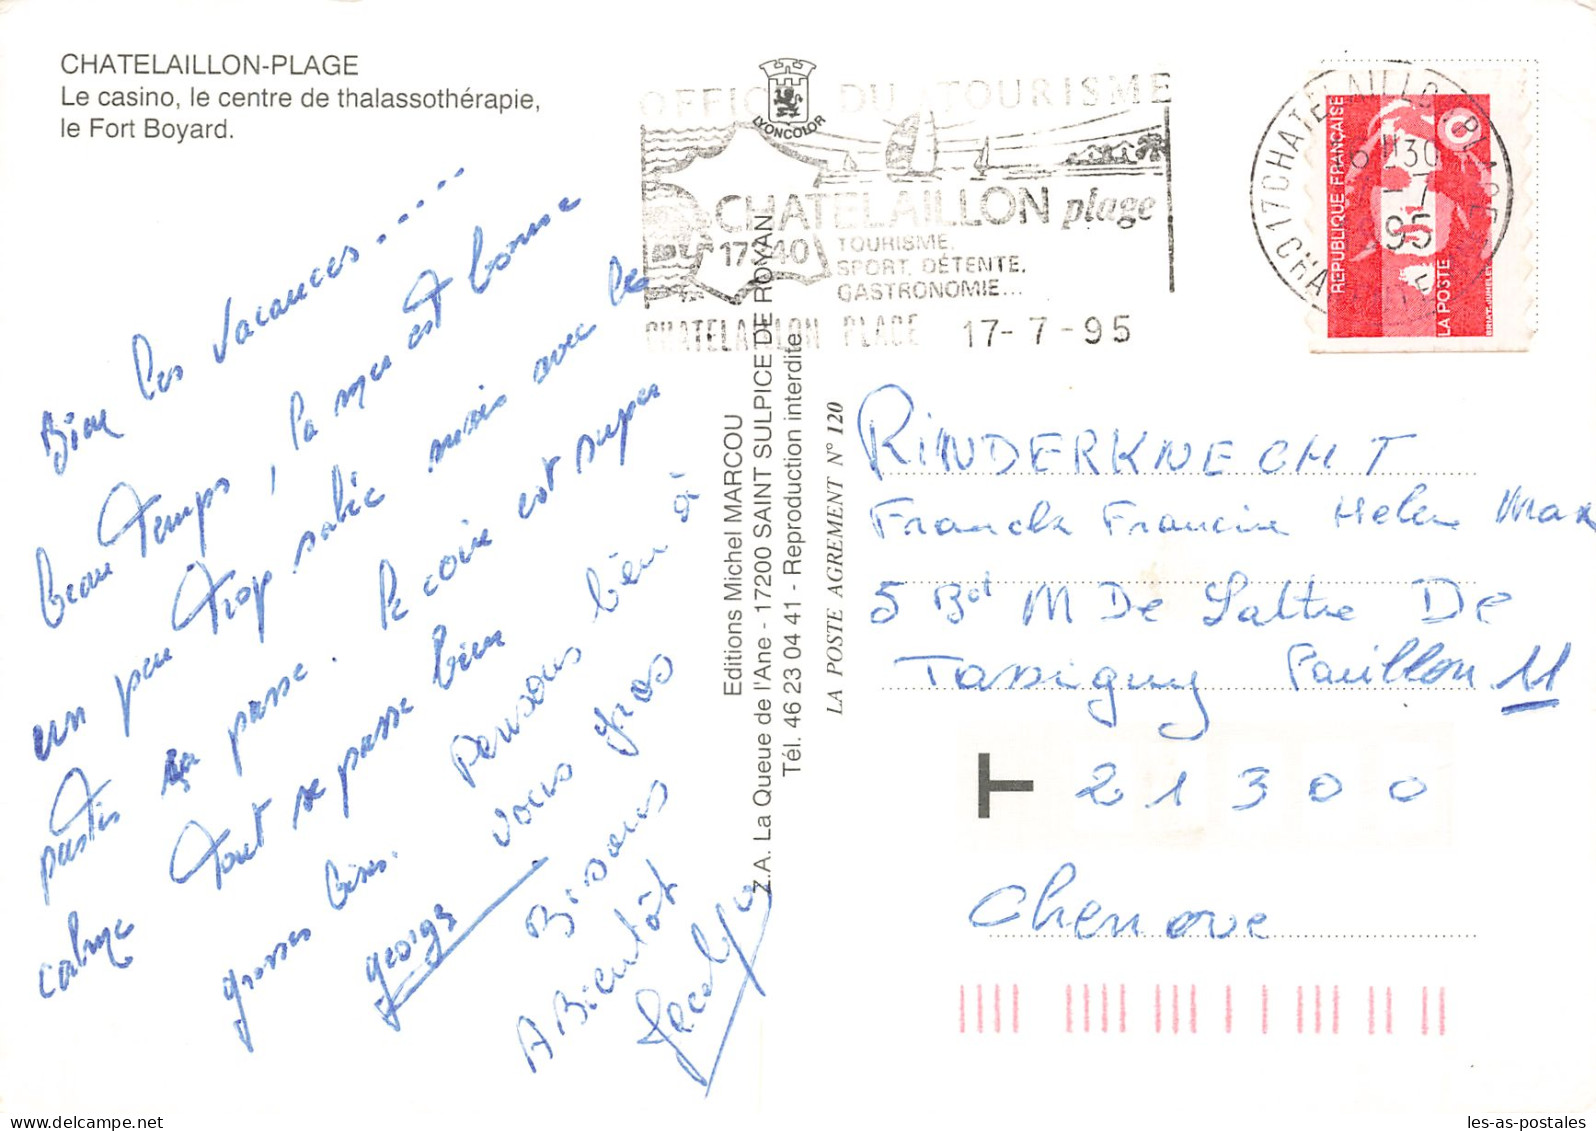 CHATELAILLON-PLAGE
Le casino, le centre de thalassothérapie,
le Fort Boyard.
LYONCOLOR
OFFICE DU TOURISME
CHATELAILLON plage
17340
TOURISME.
SPORT. DÉTENTE.
GASTRONOMIE...
CHATELAILLON PLAGE 17-7-95
17 CHATELAILLON PLAGE
17-7
95
REPUBLIQUE FRANÇAISE
LA POSTE
Bien les vacances.....
beau temps, la mer est bonne
un peu trop salée mais avec le
pastis sa passe. le coin est super
calme tout se passe bien
grosses bises.
georges
Pensons bien à
vous gros
Bisous
A Bientôt
Editions Michel MARCOU
Z.A. La Queue de l'Ane - 17200 SAINT SULPICE DE ROYAN
Tél. 46 23 04 41 - Reproduction interdite
LA POSTE AGREMENT N° 120
RINDERKNECHT
Franck Francine Helene Max
5 Bd M De Lattre De
Tassigny Pavillon 11
T 21300
Chenove
les-as-postales